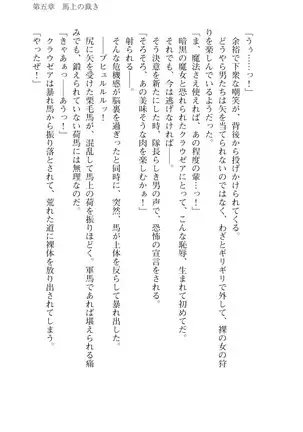 第五章　馬上の裁き
余裕で下衆な嘲笑が、背後から投げかけられてくる。
「うぅ……っ！」
どうやら男たちは矢を当てられないのではなく、わざとギリギリで外して、裸の女の狩
りを楽しんでいるようだった。
「ま、魔法さえ使えれば、あの程度の輩…っ！」
それでも、今は逃げなければ――。
暗黒の魔女と恐れられたクラウゼアにとって、こんな恥辱、生まれて初めてだ。
そう決意を新たにした時、隊長らしき男の声で、恐怖の宣言をされる。
「そろそろ、あの美味そうな肉を楽しむかぁ！」
射られる――。
そんな危機感が脳裏を過ぎったと同時に、突然、馬が上体を反らして暴れ出した。
ブヒュルルルッ！
尻に矢を受けた栗毛馬が、混乱して馬上の荷を振りほどく。軍馬であれば堪えられる痛
みでも、鍛えられていない荷馬には無理なのだ。
「きゃあぁっ――あうっ！」
クラウゼアは暴れ馬から振り落とされて、荒れた道に裸体を放り出されてしまう。
「やったぜ！」